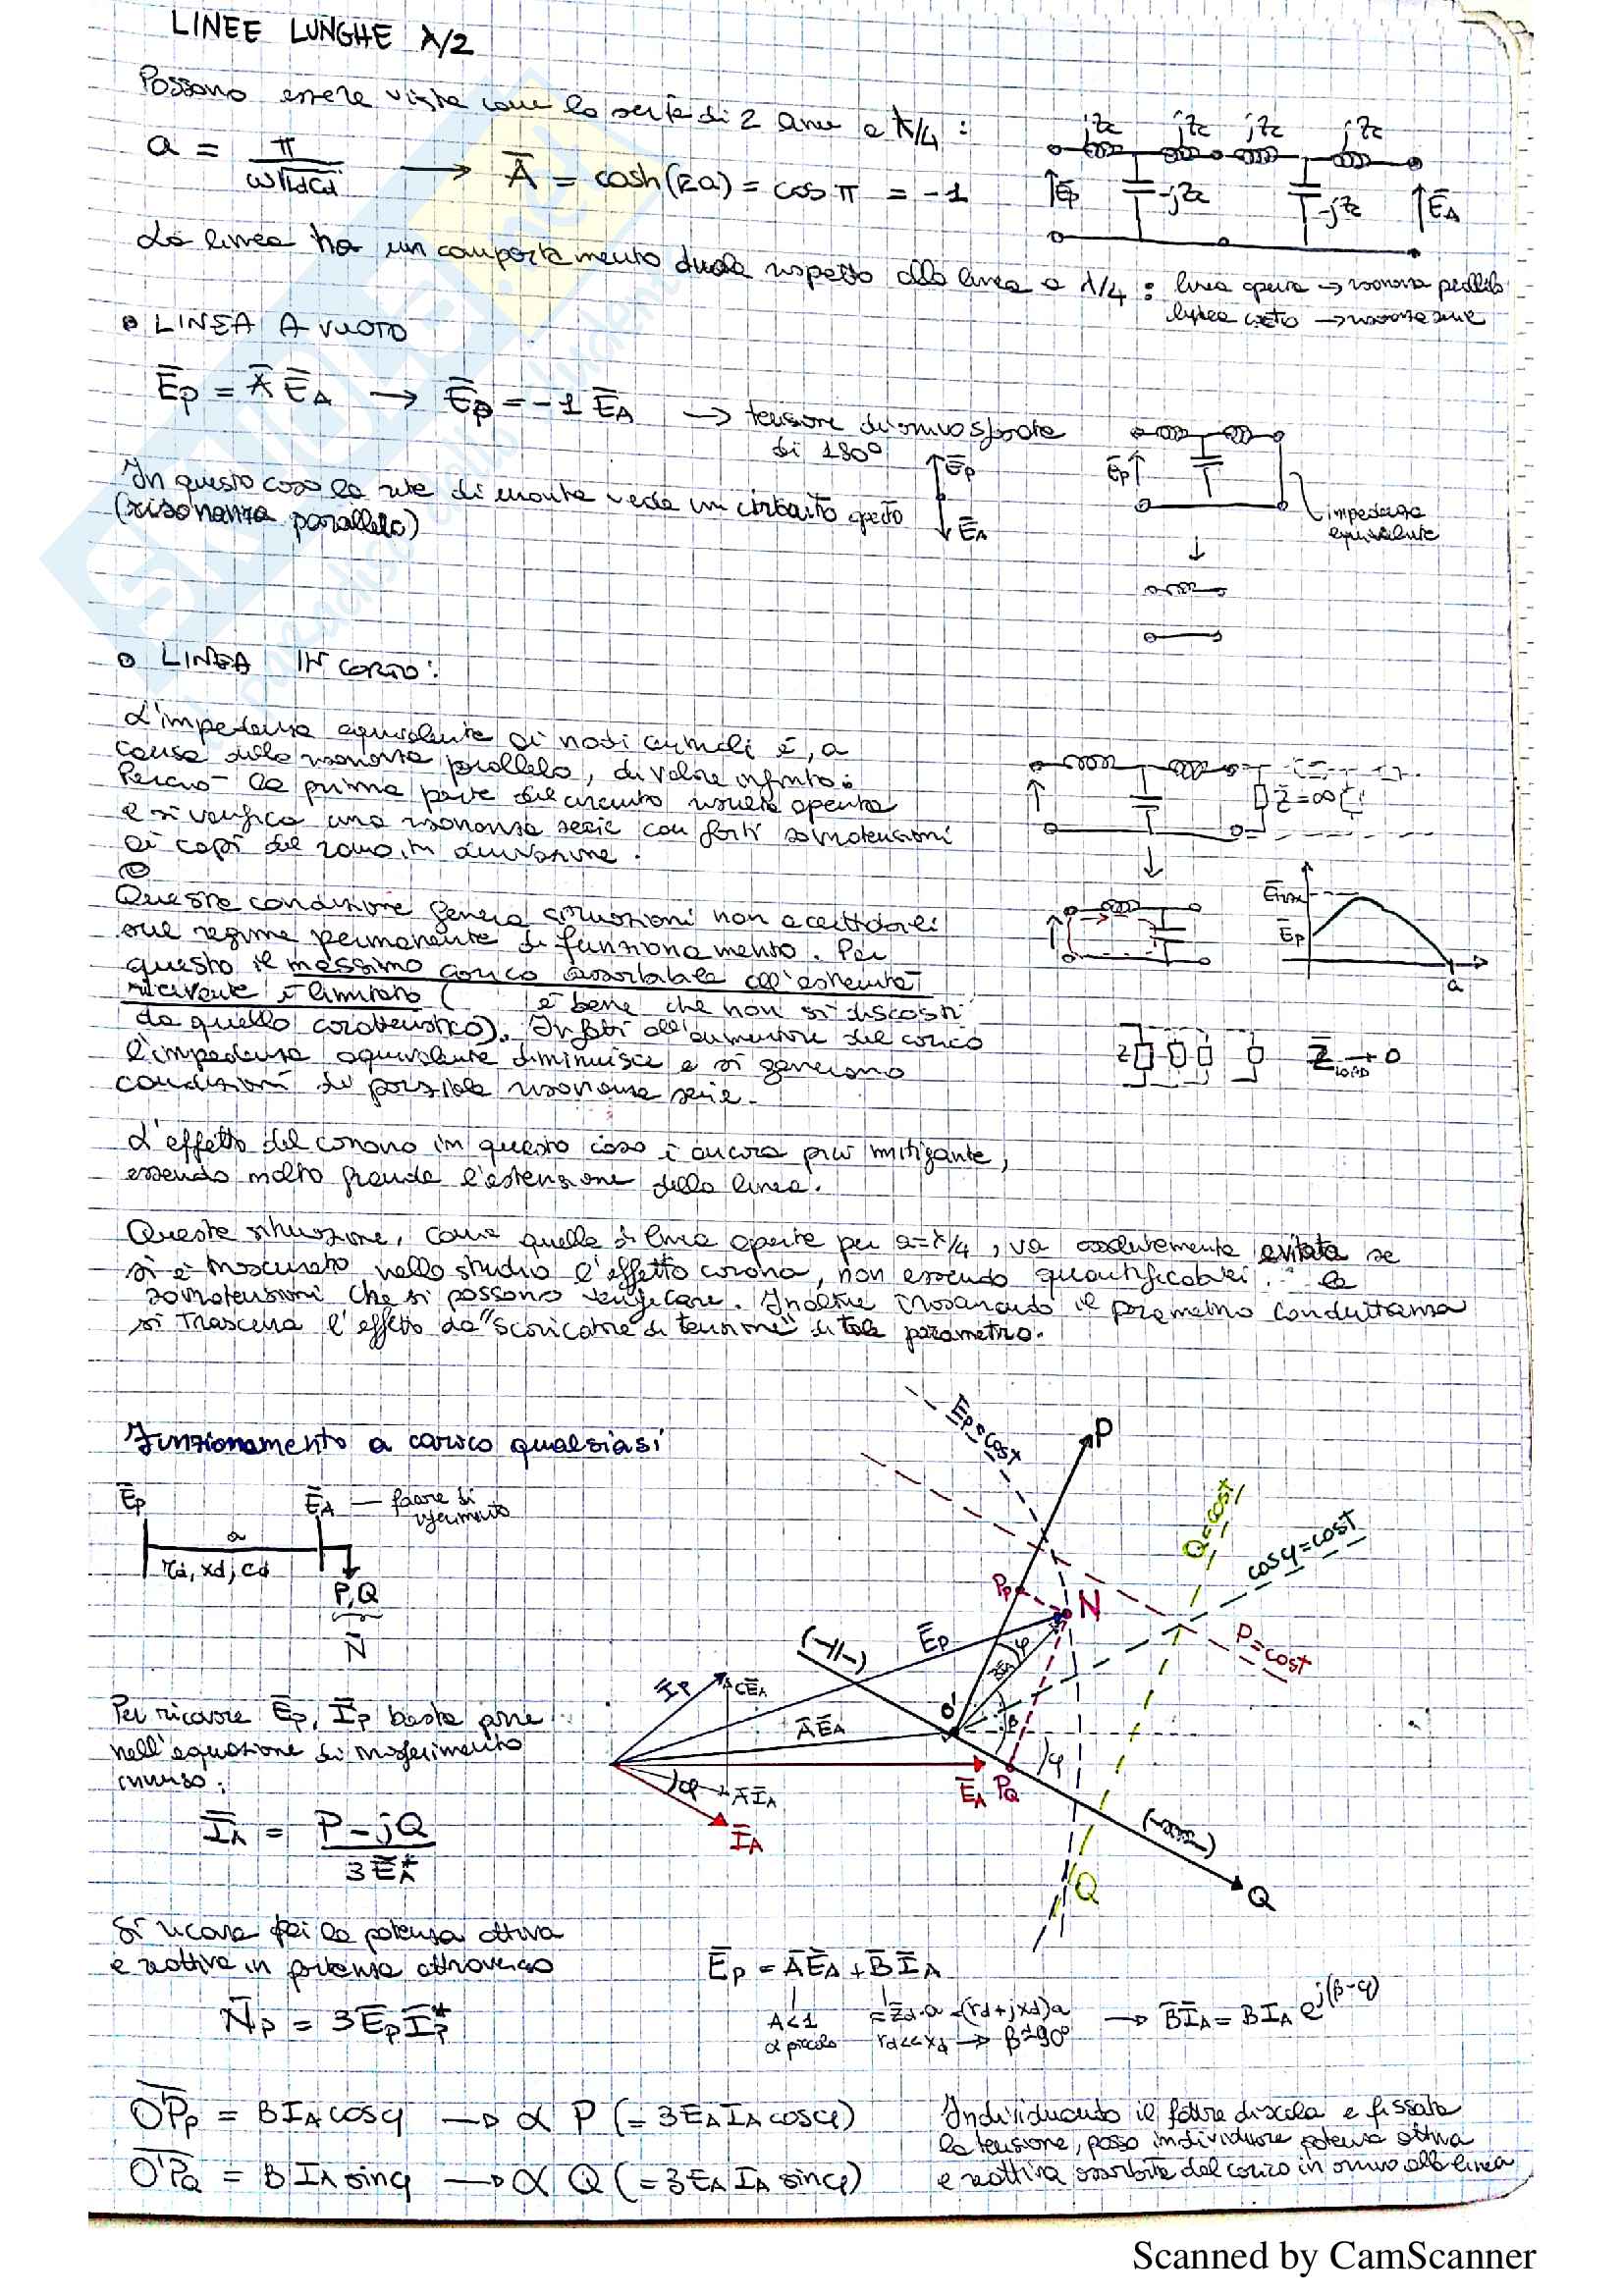 LINEE LUNGHE λ/2
Possono essere viste come la serie di 2 linee a λ/4 :
a = π / ω√ldcd → Ā = cosh(ka) = cos π = -1
jZc jZc jZc jZc
Ēp -jZc -jZc ĒA
La linea ha un comportamento duale rispetto alla linea a λ/4 : linea aperta → risonanza parallelo
linea corto → risonanza serie
• LINEA A VUOTO
Ēp = Ā ĒA → Ēp = -1 ĒA → tensione di arrivo sfasata
di 180°
Ēp
ĒA
Ēp
In questo caso la rete di monte vede un circuito aperto
(risonanza parallelo)
impedenza
equivalente
• LINEA IN CORTO:
L'impedenza equivalente ai nodi centrali è, a
causa della risonanza parallelo, di valore infinito:
Perciò la prima parte del circuito risulta aperta
e si verifica una risonanza serie con forti sovratensioni
ai capi del ramo in derivazione.
Z̄=∞
Emax
Ēp
a
Questa condizione genera situazioni non accettabili
nel regime permanente di funzionamento. Per
questo il massimo carico assorbibile all'estremità
ricevente è limitato ( è bene che non si discosti
da quello caratteristico). Infatti all'aumentare del carico
l'impedenza equivalente diminuisce e si generano
condizioni di possibile risonanza serie.
Z Z̄LOAD → 0
L'effetto del corona in questo caso è ancora più mitigante,
essendo molto grande l'estensione della linea.
Questa situazione, come quella di linea aperta per a=λ/4, va assolutamente evitata se
si è trascurato nello studio l'effetto corona, non essendo quantificabili le
sovratensioni che si possono verificare. Inoltre trascurando il parametro conduttanza
si trascura l'effetto da "scaricatore di tensione" di tale parametro.
Funzionamento a carico qualsiasi
Ēp ĒA — fasore di
riferimento
a
rd, xd, cd
P,Q
N̄
Ēp=cost
P
Q=cost
cosφ=cost
Pp
N
P=cost
Ēp
φ
O'
β
ĪP
CĒA
ĀĒA
φ
ĀĪA
ĒA
PQ
φ
ĪA
Q
Q
Per ricavare Ēp, Īp basta porre
nell'equazione di trasferimento
inverso:
ĪA = P-jQ / 3ĒA*
Si ricava poi la potenza attiva
e reattiva in partenza attraverso
N̄p = 3ĒpĪp*
Ēp = ĀĒA + B̄ĪA
A<1 = z̄d·a = (rd+jxd)a → B̄ĪA = BIA e^j(β-φ)
α piccolo rd<<xd → β≃90°
O'Pp = BIA cosφ → α P (= 3EAIA cosφ)
O'PQ = BIA sinφ → α Q (= 3EAIA sinφ)
Individuando il fattore di scala e fissata
la tensione, posso individuare potenza attiva
e reattiva assorbita dal carico in arrivo alla linea
Scanned by CamScanner